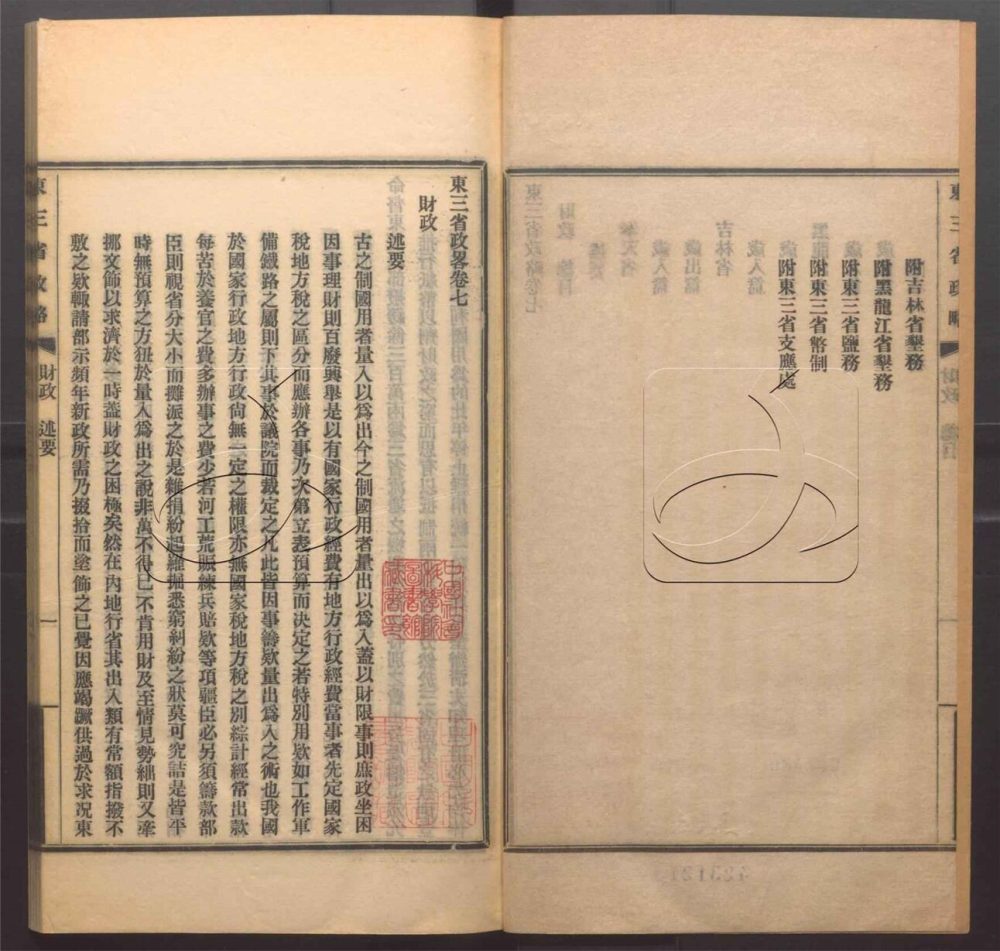 附吉林省墾務
附黑龍江省墾務
附東三省鹽務
附東三省幣制
附東三省支應處
東三省政畧卷七
財政
述要
古之制國用者量入以爲出今之制國用者量出以爲入蓋以財限事則庶政坐困
因事理財則百廢興舉是以有國家行政經費有地方行政經費當事者先定國家
稅地方稅之區分而應辦各事乃次第立表預算而決定之若特別用欵如工作軍
備鐵路之屬則下其事於議院而裁定之凡此皆因事籌欵量出爲入之術也我國
於國家行政地方行政尙無一定之權限亦無國家稅地方稅之別綜計經常出款
每苦於養官之費多辦事之費少若河工荒賑練兵賠欵等項疆臣必另須籌款部
臣則視省分大小而攤派之於是雜捐紛起羅掘悉窮剝紛之狀莫可究詰是皆平
時無預算之方狃於量入爲出之說非萬不得已不肯用財及至情見勢絀則又牽
挪文飾以求濟於一時蓋財政之困極矣然在內地行省其出入類有常額指撥不
敷之欵輒請部示頻年新政所需乃掇拾而塗飾之已覺因應竭蹶供過於求況東
東三省政略
財政 述要